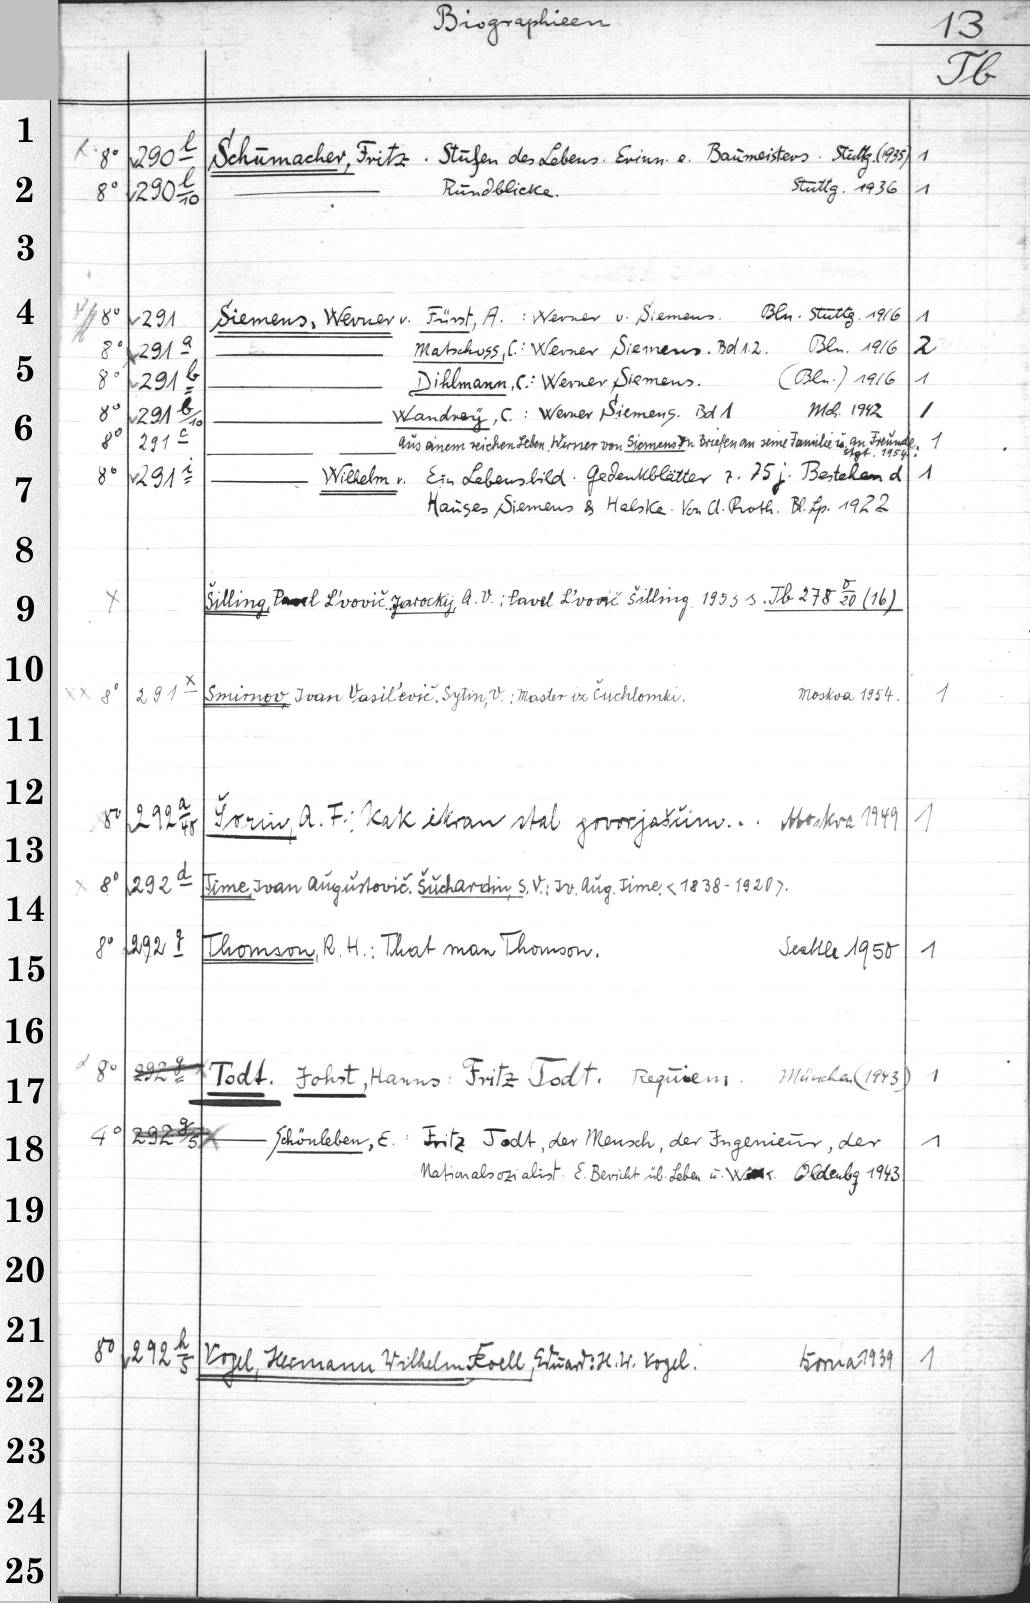 Biographieen
13
Tb
1
8° 290 l Schumacher, Fritz. Stufen des Lebens. Erinn. e. Baumeisters. Stuttg. (1935) 1
2
8° 290 l/10 Rundblicke. Stuttg. 1936 1
3
4
8° 291 Siemens, Werner v. Fürst, A.: Werner v. Siemens. Bln. Stuttg. 1916 1
8° 291 a Matschoss, C.: Werner Siemens. Bd 1.2. Bln. 1916 2
5
8° 291 b Dihlmann, C.: Werner Siemens. (Bln.) 1916 1
8° 291 b/10 Wandrey, C.: Werner Siemens. Bd 1 Mch. 1942 1
6
8° 291 c Aus einem reichen Leben. Werner von Siemens in Briefen an seine Familie u. an Freunde. 1
Stgt. 1954.
8° 291 i Wilhelm v. Ein Lebensbild. Gedenkblätter z. 75 j. Bestehen d 1
7
Hauses Siemens & Halske. Von A. Roth. Bl. Lp. 1922
8
9
x Šilling, Pavel L'vovič. Jarockij, A. V.: Pavel L'vovič Šilling 1953 s. Tb 278 b/20 (16)
10
xx 8° 291 x Smirnov, Ivan Vasil'evič. Sytin, V.: Master iz Čuchlomki. Moskva 1954. 1
11
12
8° 292 a/48 Šorin, A. F.: Kak ekran stal govorjaščim... Moskva 1949 1
13
x 8° 292 d Time, Ivan Augustovič. Šuchardin, S. V.: Iv. Aug. Time. <1838-1920>.
14
8° 292 g Thomson, R. H.: That man Thomson. Seattle 1950 1
15
16
8° 292 g Todt. Johst, Hanns: Fritz Todt. Requiem. München (1943) 1
17
4° 292 g/5 Schönleben, E.: Fritz Todt, der Mensch, der Ingenieur, der 1
18
Nationalsozialist. E. Bericht üb. Leben u. Werk. Oldenbg 1943
19
20
21
8° 292 h/5 Vogel, Hermann Wilhelm. Koell, Eduard: H. W. Vogel. Borna 1939 1
22
23
24
25